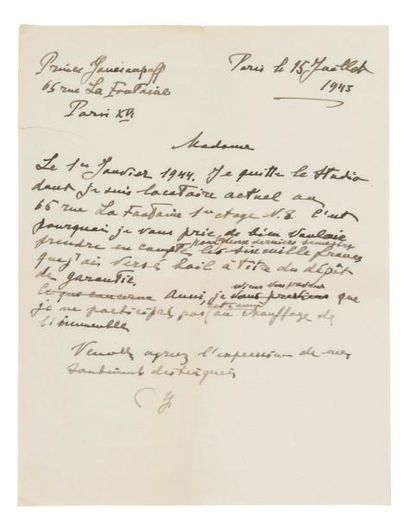 Prince Youssoupoff
65 rue La Fontaine
Paris XVI
Paris le 15 Juillet
1943
Madame
Le 1er Janvier 1944. Je quitte le Studio
dont je suis locataire actuel au
65 rue La Fontaine 1er etage N. 8. C'est
pourquoi je vous prie de bien vouloir
prendre en compte pour deux derniers semestres
les six mille francs
que j'ais versé soit à titre du dépôt
de garantie.
Ce qui concerne Aussi, je vous previens que
je ne participes pas au chauffage de
l'immeuble
Veuillez agréez l'expression de mes
sentiments distingués
Y